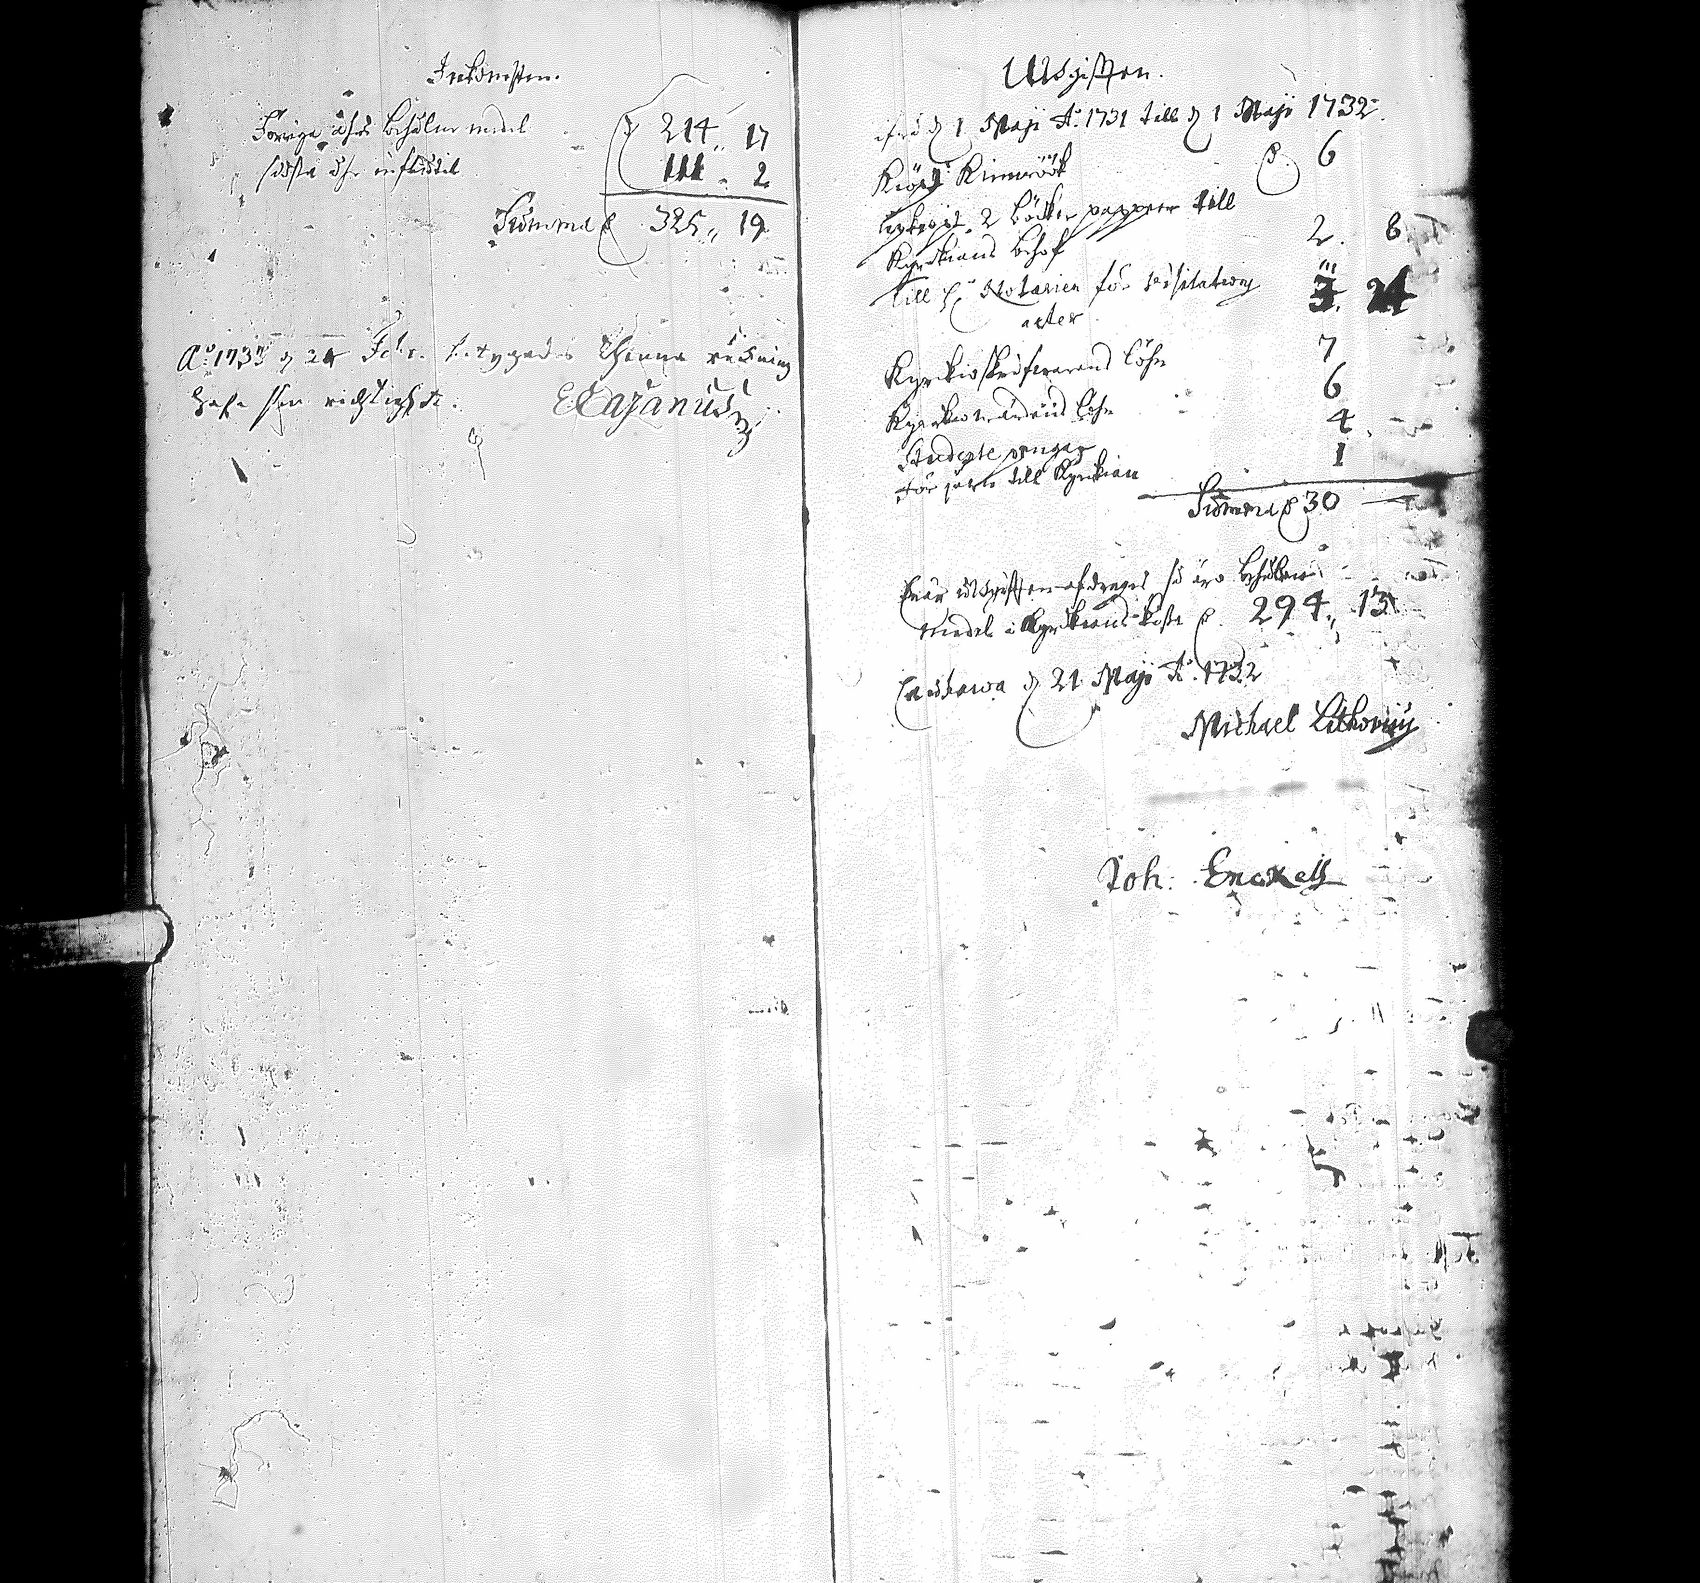 Inkomsten.
Förriga åhrs behåldne medel 214,, 17
sidsta åhr influtit 111,, 2
Summa 325,, 19
A:o 1733 d 24 Febr. betygades thenna räckning
hafa sin richtighet.
E Cajanus
Utgifften.
ifrån d 1 Maji A:o 1731 till d 1 Maji 1732.
Kiöpt Kimrööt 6
2 böcker papper till
Kyrkians behof 2. 8
till H: Notarien för visitations
acter 3. 24
Kyrkio löhn 7
Kyrkiowärdens löhn 6
Studente pengar 4
för till Kyrkian 1
Summa 30
När utgifften afdrages så äro behåldne
medel i Kyrkians kassa 294,, 13
d 21 Maji A:o 1732
Michael Lithovius
Joh: Enckell